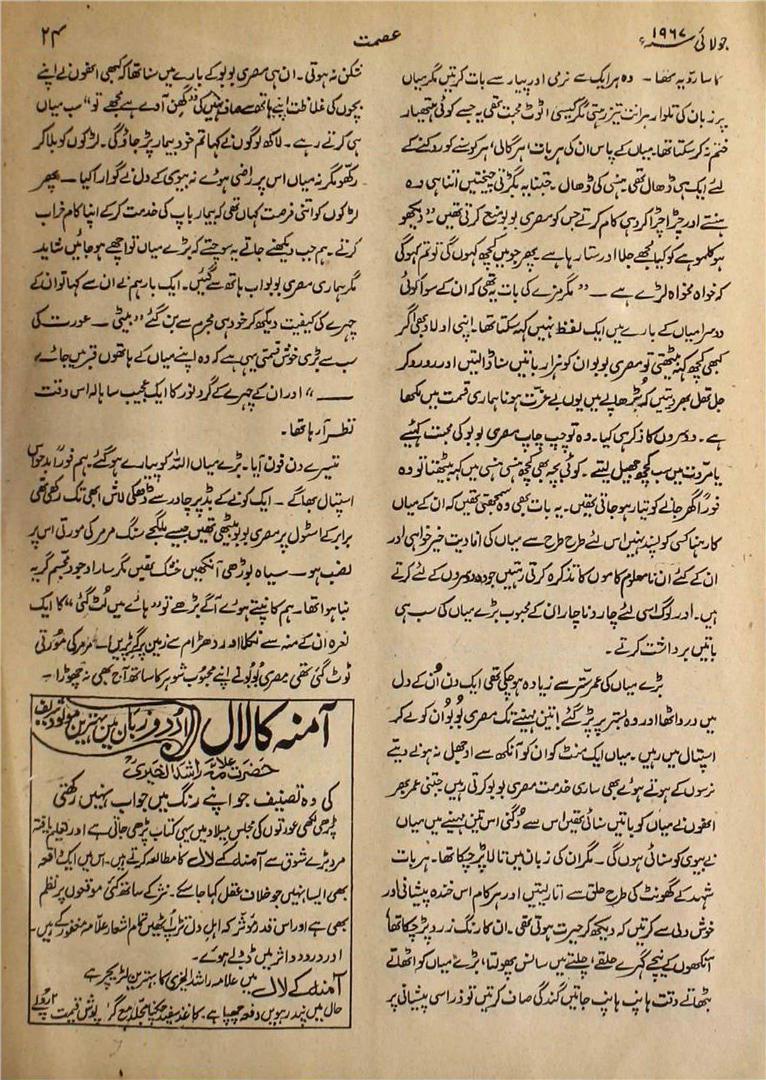 جولائی ۱۹۶۷ء
عصمت
۲۴
کا سا رویہ تھا۔ وہ ہر ایک سے نرمی اور پیار سے بات کرتیں مگر میاں
پر زبان کی تلوار ہر آنت تیز رہتی مگر کیسی اٹوٹ محبت تھی یہ جسے کوئی ہتھیار
ختم نہ کر سکتا تھا۔ میاں کے پاس ان کی ہر بات، ہر گالی، ہر کوسنے کو روکنے کے
لئے ایک ہی ڈھال تھی ہنسی کی ڈھال۔ جتنا یہ بگڑتی چیختیں اتنا ہی وہ
ہنستے اور چڑا چڑا کر وہی کام کرتے جس کو مصری بوبو منع کرتی تھیں۔ "دیکھو
ہو کلموہے کو کیا مجھے جلا اور ستا رہا ہے پھر جو میں کچھ کہوں گی تو تم کہو گی
کہ خواہ مخواہ لڑے ہے —" مگر مزے کی بات یہ تھی کہ ان کے سوا کوئی
دوسرا میاں کے بارے میں ایک لفظ نہیں کہہ سکتا تھا۔ اپنی اولاد بھی اگر
کبھی کچھ کہہ بیٹھتی تو مصری بوبو ان کو ہزار باتیں سنا ڈالتیں اور رو رو کر
جل تھل بھر دیتیں کہ بڑھاپے میں یوں بے عزت ہونا ہماری قسمت میں لکھا
ہے۔ دوسروں کا ذکر ہی کیا۔ وہ تو چپ چاپ مصری بوبو کی محبت کہیئے
یا مروت میں سب کچھ جھیل لیتے۔ کوئی بچہ بھی کچھ ہنسی ہنسی میں کہہ بیٹھتا تو وہ
فوراً گھر جانے کو تیار ہو جاتی تھیں۔ یہ بات بھی وہ سمجھتی تھیں کہ ان کے میاں
کا رہنا کسی کو پسند نہیں اس لئے طرح طرح سے میاں کی افادیت خیر خواہی اور
ان کے کئے ان نامعلوم کاموں کا تذکرہ کرتی رہتیں جو وہ دوسروں کے لئے کرتے
ہیں۔ اور لوگ اسی لئے چار و ناچار ان کے محبوب بڑے میاں کی سب ہی
باتیں برداشت کرتے۔
بڑے میاں کی عمر ستر سے زیادہ ہو چکی تھی ایک دن اُن کے دل
میں درد اٹھا اور وہ بستر پر پڑ گئے! تین مہینے تک مصری بوبو ان کو لے کر
اسپتال میں رہیں۔ میاں ایک منٹ کو ان کو آنکھ سے اوجھل نہ ہونے دیتے
نرسوں کے ہوتے ہوئے بھی ساری خدمت مصری بوبو کرتی رہیں جتنی عمر بھر
انھوں نے میاں کو باتیں سنائی تھیں اس سے دُگنی اس تین مہینے میں میاں
نے بیوی کو سنائی ہوں گی۔ مگر ان کی زبان میں تالا پڑ چکا تھا۔ ہر بات
شہد کے گھونٹ کی طرح حلق سے اتار لیتیں اور ہر کام اس خندہ پیشانی اور
خوش دلی سے کرتیں کہ دیکھ کر حیرت ہوتی تھی۔ ان کا رنگ زرد پڑ چکا تھا
آنکھوں کے نیچے گہرے حلقے، چلنے میں سانس پھولتا، بڑے میاں کو اٹھاتے
بٹھاتے وقت ہانپ ہانپ جاتیں گندگی صاف کرتیں تو ذرا سی پیشانی پر
شکن نہ ہوتی۔ ان ہی مصری بوبو کے بارے میں سنا تھا کہ کبھی انھوں نے اپنے
بچوں کی غلاظت اپنے ہاتھ سے صاف نہیں کی "گھن آوے ہے مجھے تو" سب میاں
ہی کرتے رہے۔ لاکھ لوگوں نے کہا تم خود بیمار پڑ جاؤ گی۔ لڑکوں کو بلا کر
رکھو مگر نہ میاں اس پر راضی ہوئے نہ بیوی کے دل نے گوارا کیا — پھر
لڑکوں کو اتنی فرصت کہاں تھی کہ بیمار باپ کی خدمت کرکے اپنا کام خراب
کرتے۔ ہم جب دیکھنے جاتے یہ سوچتے کہ بڑے میاں تو اچھے ہو جائیں شاید
مگر ہماری مصری بوبو اب ہاتھ سے گئیں۔ ایک بار ہم نے ان سے کہا تو ان کے
چہرے کی کیفیت دیکھ کر خود ہی مجرم سے بن گئے "بیٹی — عورت کی
سب سے بڑی خوش قسمتی یہی ہے کہ وہ اپنے میاں کے ہاتھوں قبر میں جائے
—" اور ان کے چہرے کے گرد نور کا ایک عجیب سا ہالہ اس وقت
نظر آ رہا تھا۔
تیسرے دن فون آیا۔ بڑے میاں اللہ کو پیارے ہو گئے۔ ہم فوراً بدحواس
اسپتال بھاگے۔ ایک کونے کے بڈ پر چادر سے ڈھکی لاش ابھی تک رکھی تھی
برابر کے اسٹول پر مصری بوبو بیٹھی تھیں جیسے ملگجے رنگ مرمر کی مورتی اس پر
نصب ہو — سیاہ بوڑھی آنکھیں خشک تھیں مگر سارا وجود مجسم گریہ
بنا ہوا تھا۔ ہم کانپتے ہوئے آگے بڑھے تو "ہائے میں لُٹ گئی" کا ایک
نعرہ ان کے منہ سے نکلا اور دھڑام سے زمین پر گر پڑیں — مرمر کی مورتی
ٹوٹ گئی تھی مصری بُوبُو نے اپنے محبوب شوہر کا ساتھ آج بھی نہ چھوڑا۔
آمنہ کا لال
اُردو زبان میں بہترین مولود شریف
حضرت علامہ راشد الخیری
کی وہ تصنیف جو اپنے رنگ میں جواب نہیں رکھتی
پڑھی لکھی عورتوں کی مجلس میلاد میں یہی کتاب پڑھی جاتی ہے اور تعلیم یافتہ
مرد بڑے شوق سے آمنہ کے لال کا مطالعہ کرتے ہیں۔ اس میں ایک واقعہ
بھی ایسا نہیں جو خلاف عقل کہا جا سکے۔ نثر کے ساتھ کئی موقعوں پر نظم
بھی ہے اور اس قدر موثر کہ اہلِ دل تڑپ اٹھیں تمام اشعار علامہ مغفور کے ہیں۔
اور درد و اثر میں ڈوبے ہوئے۔
آمنہ کے لال میں علامہ راشد الخیری کا بہترین لٹریچر ہے
حال میں پندرہویں دفعہ چھپا ہے۔ کاغذ سفید چکنا مجلد مع گرد پوش قیمت ۲ روپے